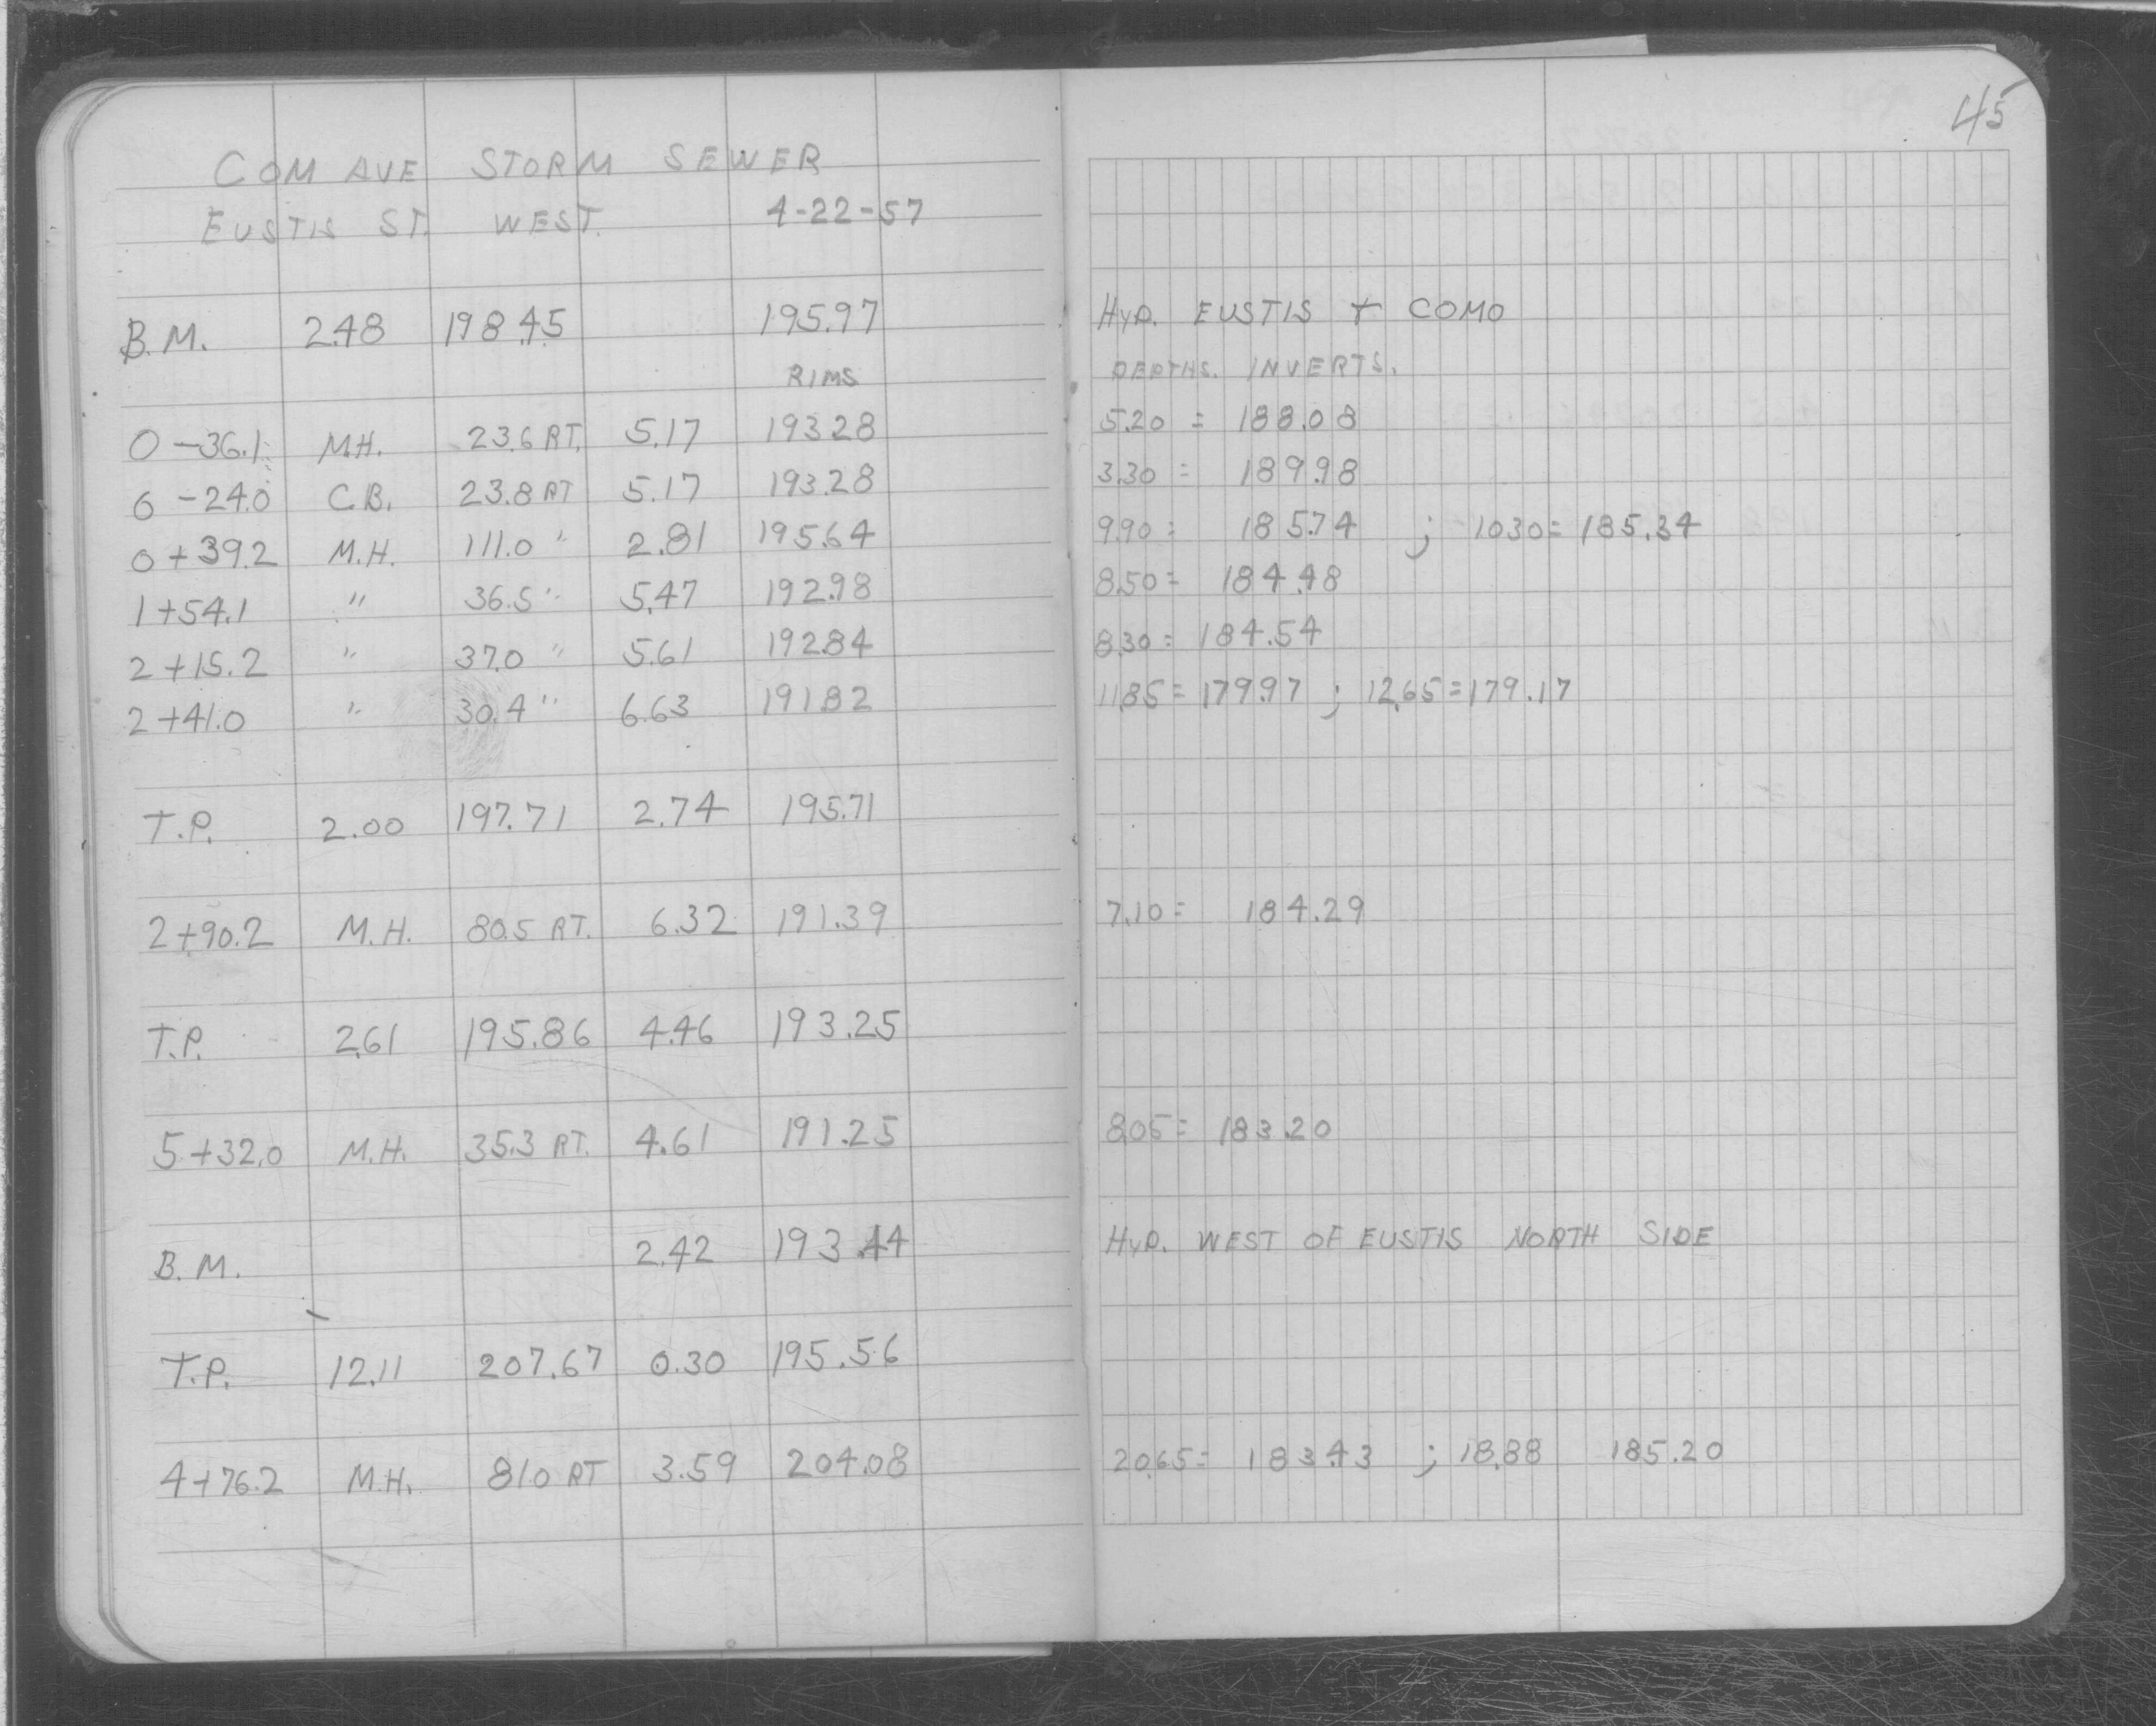 45
COM AVE STORM SEWER
EUSTIS ST. WEST. 4-22-57
B.M. 2.48 198.45 195.97 HYD. EUSTIS + COMO
RIMS DEPTHS. INVERTS.
0-36.1 M.H. 23.6 RT. 5.17 193.28 5.20 = 188.08
0-24.0 C.B. 23.8 RT 5.17 193.28 3.30 = 189.98
0+39.2 M.H. 111.0 " 2.81 195.64 9.90 = 185.74 ; 10.30 = 185.34
1+54.1 " 36.5 " 5.47 192.98 8.50 = 184.48
2+15.2 " 37.0 " 5.61 192.84 8.30 = 184.54
2+41.0 " 30.4 " 6.63 191.82 11.85 = 179.97 ; 12.65 = 179.17
T.P. 2.00 197.71 2.74 195.71
2+90.2 M.H. 80.5 RT. 6.32 191.39 7.10 = 184.29
T.P. 2.61 195.86 4.46 193.25
5+32.0 M.H. 35.3 RT. 4.61 191.25 8.05 = 183.20
B.M. 2.42 193.44 HYD. WEST OF EUSTIS NORTH SIDE
T.P. 12.11 207.67 0.30 195.56
4+76.2 M.H. 81.0 RT 3.59 204.08 20.65 = 183.43 ; 18.88 185.20